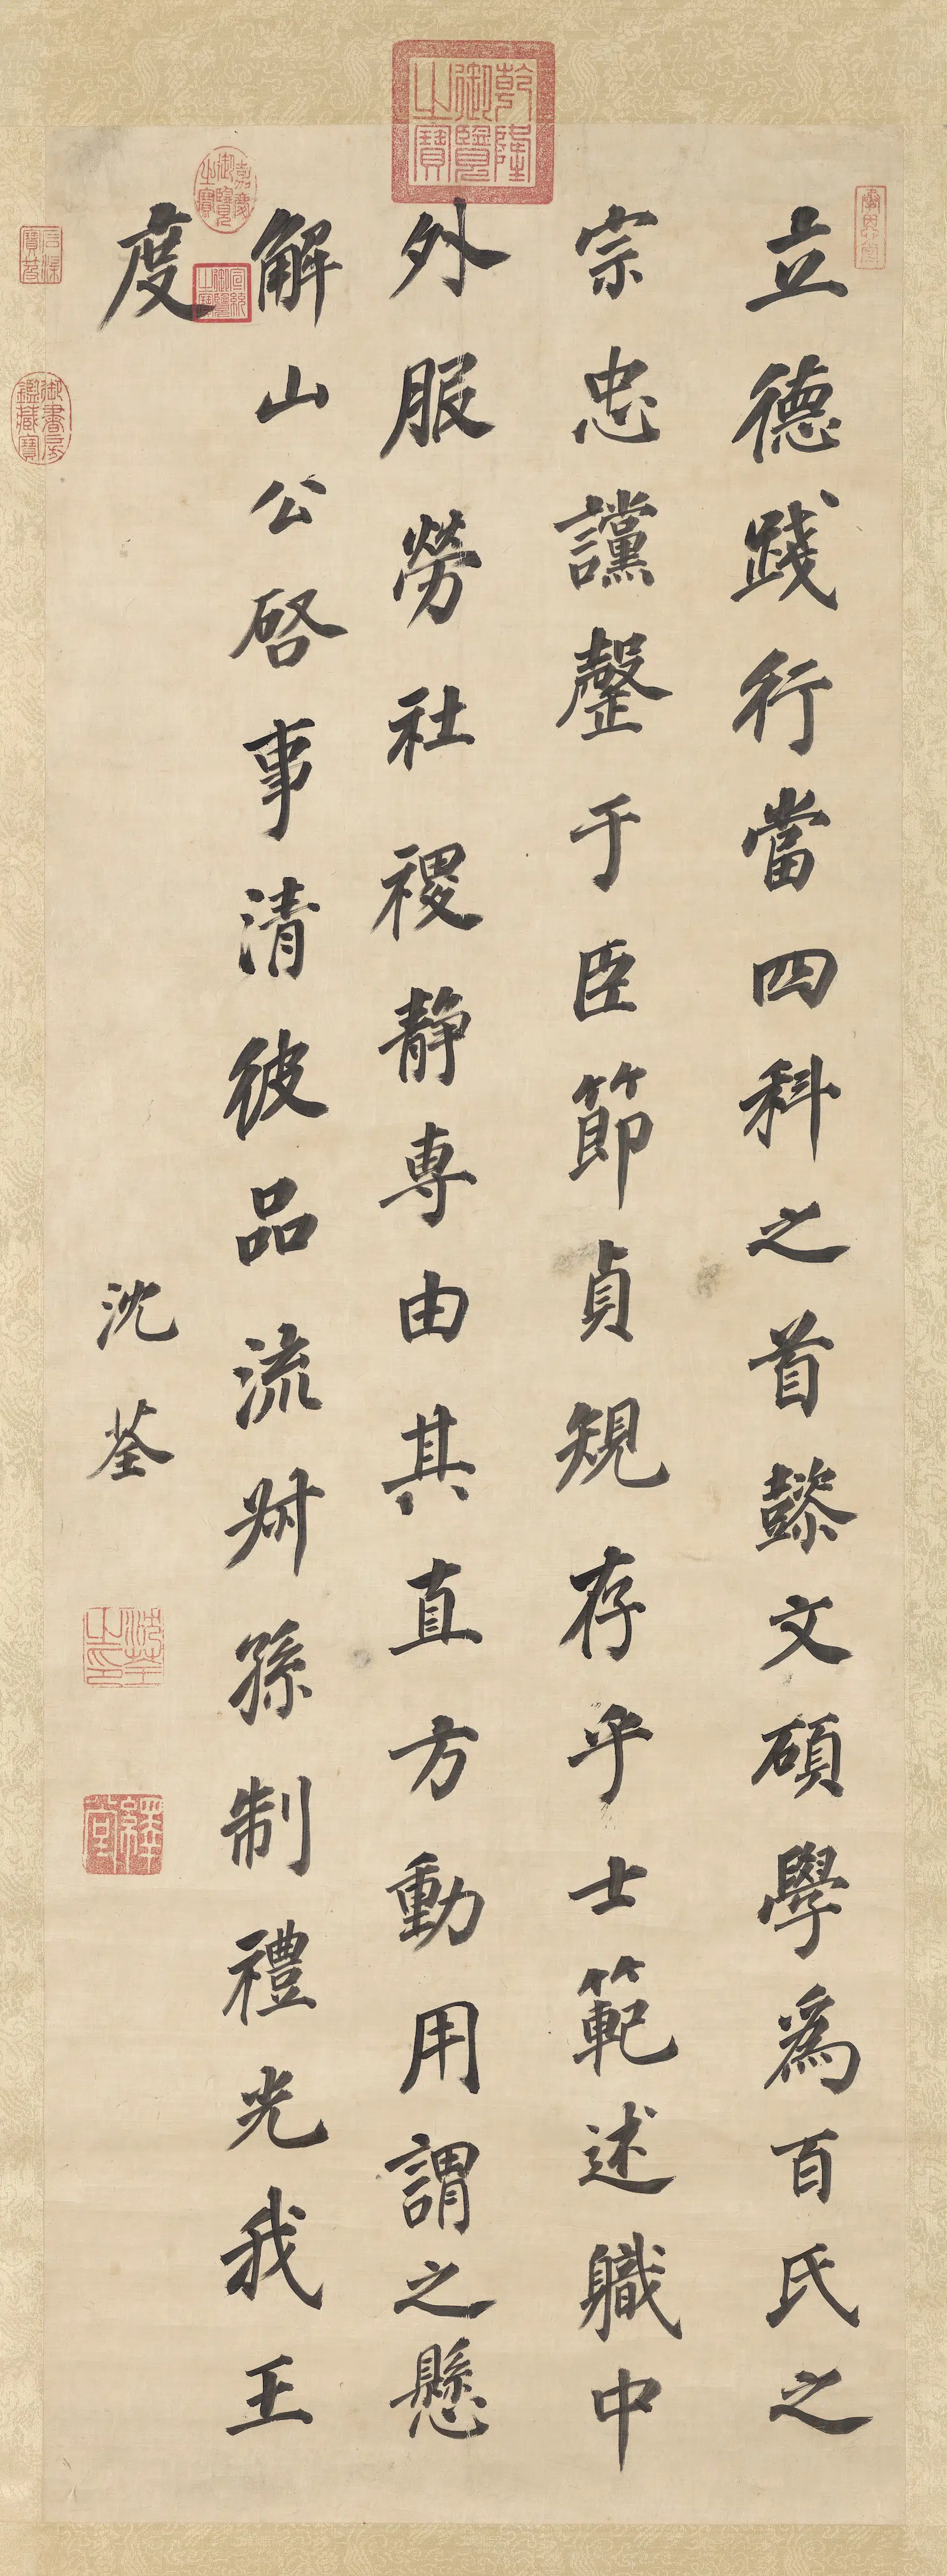 立德踐行當四科之首懿文碩學為百氏之
宗忠讜罄于臣節貞規存乎士範述職中
外服勞社稷静専由其直方動用謂之懸
解山公啓事清彼品流叔孫制禮光我王
度
沈荃
乾隆御覽之寶
嘉慶御覽之寶
宣統御覽之寶
石渠寶笈
御書房鑑藏寶
沈荃之印
繹堂